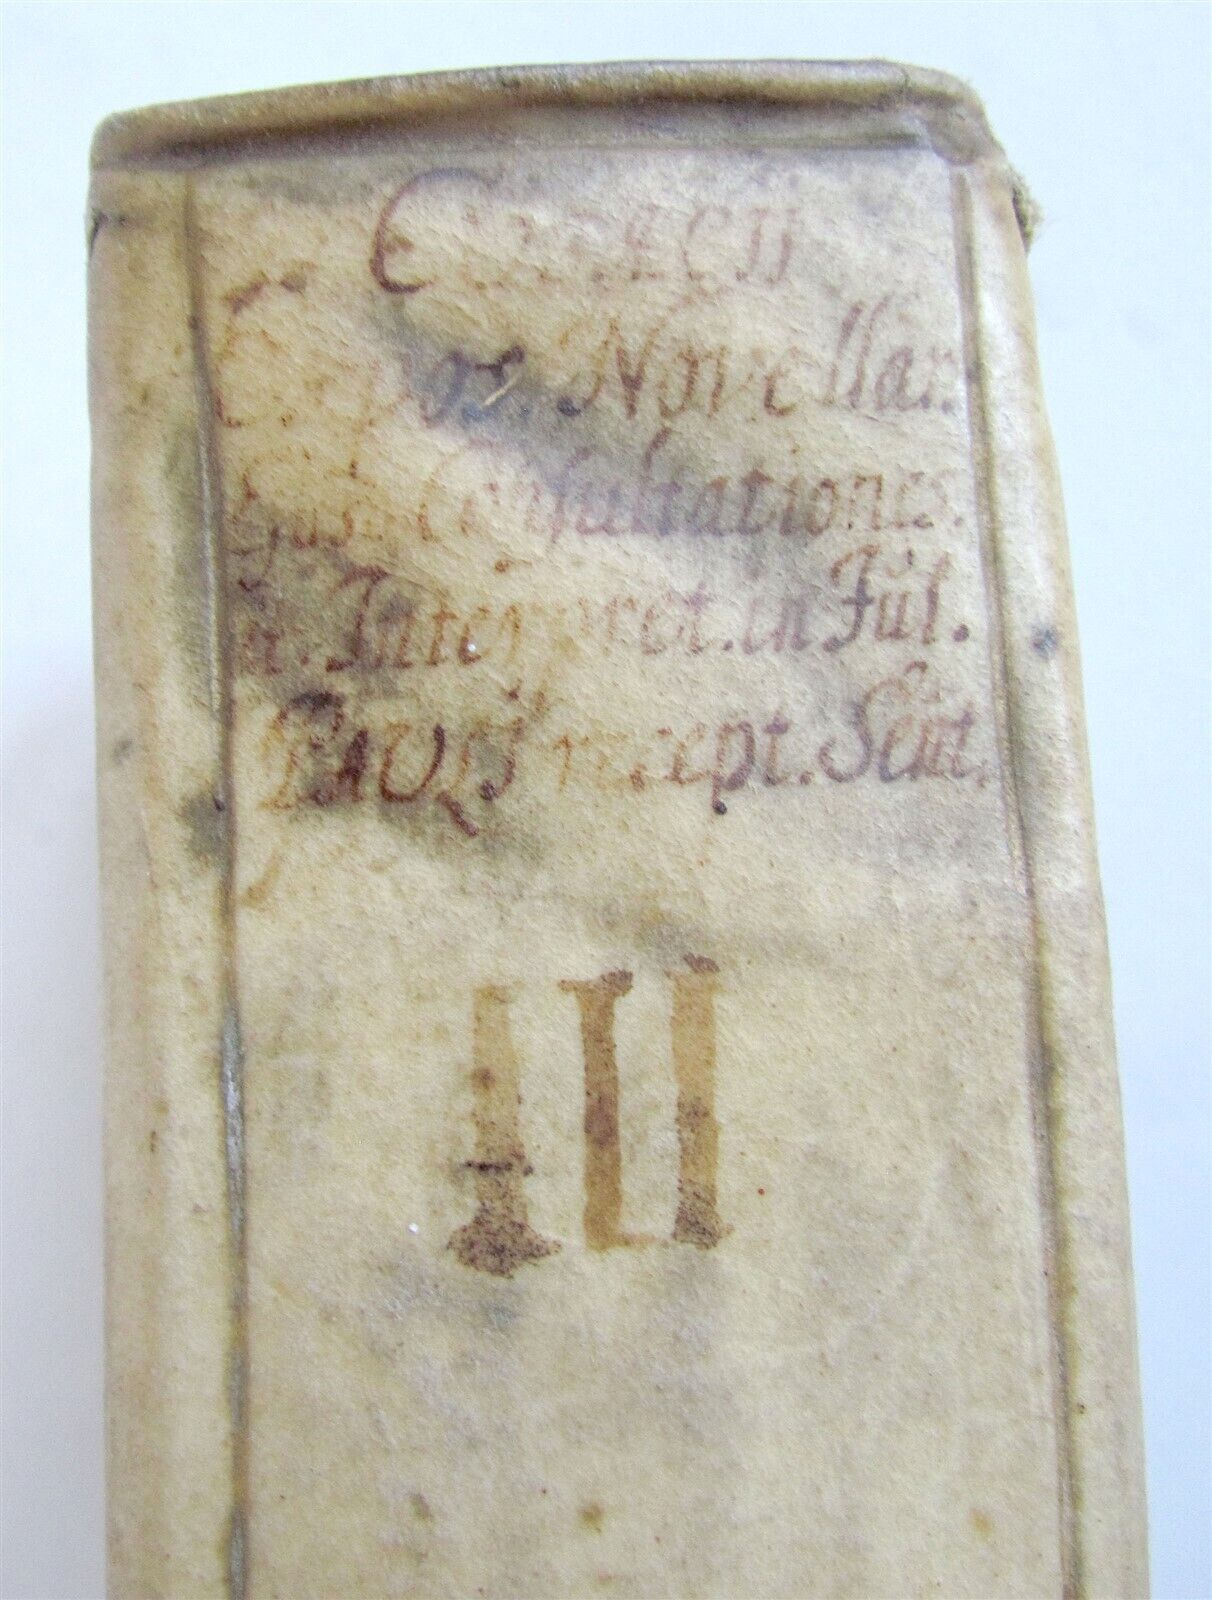 Cujacii
Expos. Novellar.
Ejusd. Consultationes.
it. Interpret. in Jŭl.
PAULI recept. Sent.
III